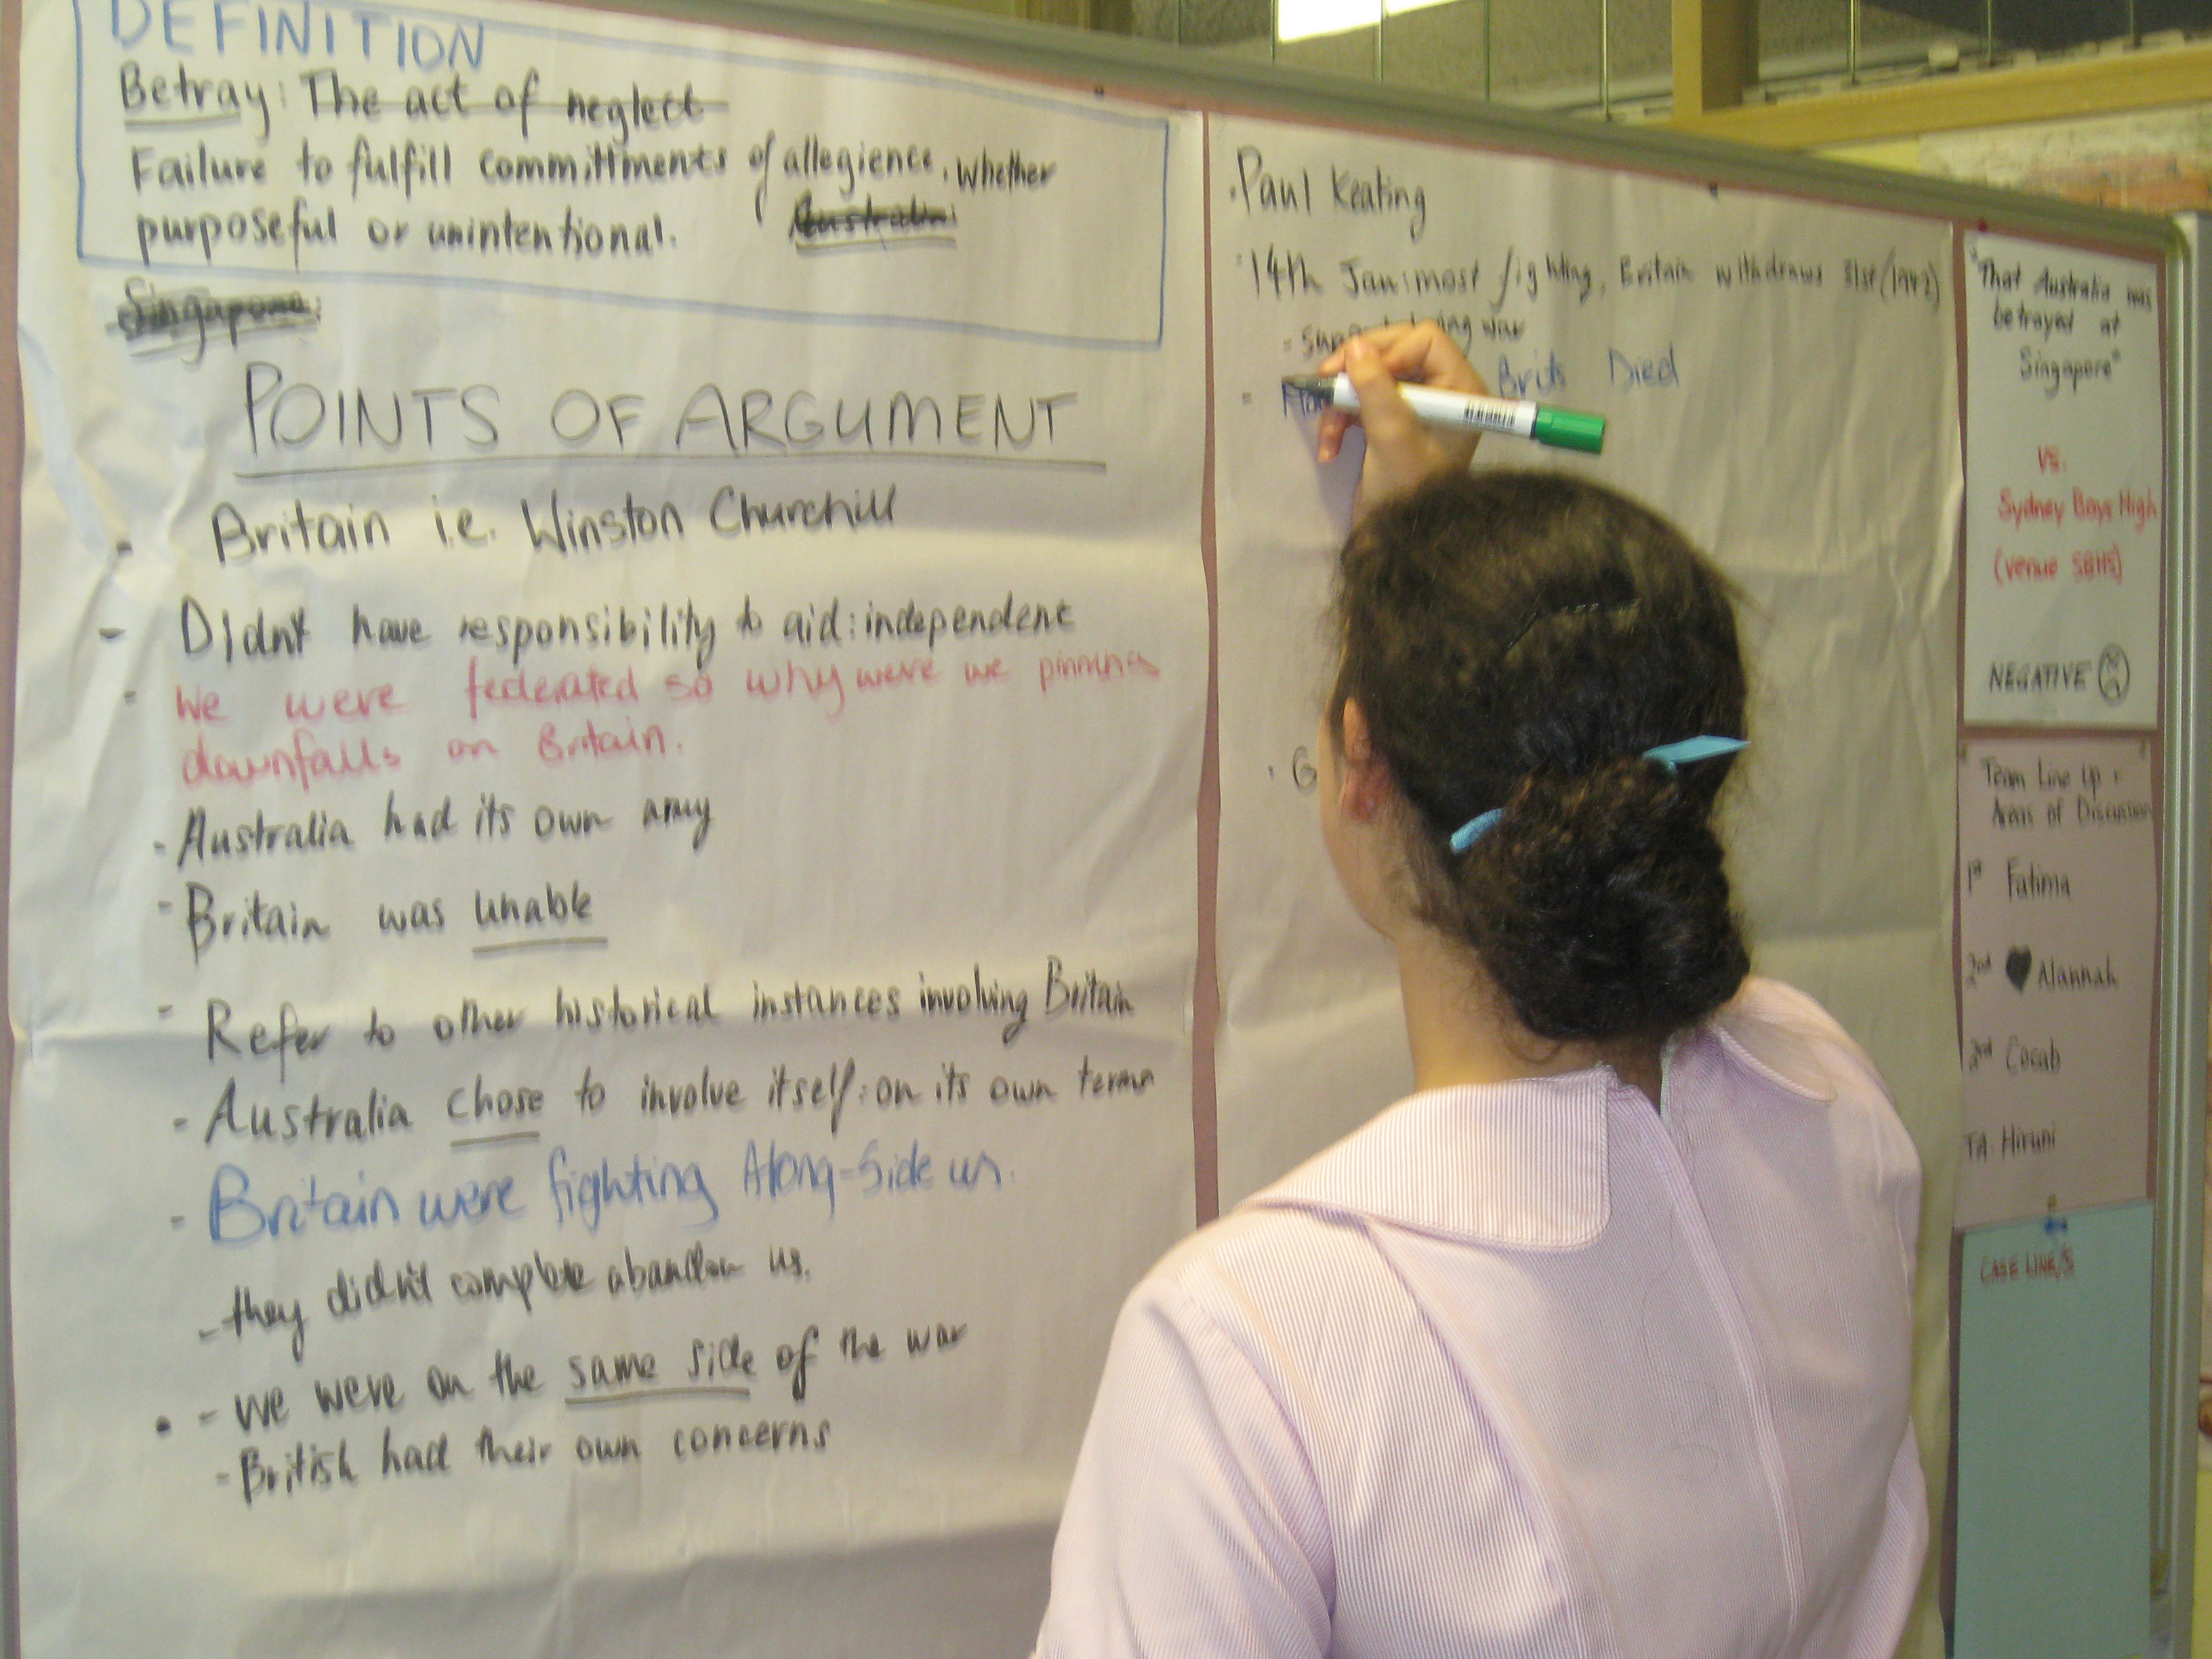 DEFINITION
Betray: The act of neglect
Failure to fulfill committments of allegience, whether
purposeful or unintentional.
Australia:
Singapore:
POINTS OF ARGUMENT
Britain i.e. Winston Churchill
- Didn't have responsibility to aid: independent
- We were federated so why were we pinning
downfalls on Britain.
- Australia had its own army
- Britain was unable
- Refer to other historical instances involving Britain
- Australia chose to involve itself: on its own terms
- Britain were fighting Along-Side us.
- they didn't complete abandon us.
- we were on the same side of the war
- British had their own concerns
Paul Keating
14th Jan: most fighting, Britain withdraws 31st (1942)
war
Brits Died
G
"That Australia was
betrayed at
Singapore"
VS.
Sydney Boys High
(venue SBHS)
NEGATIVE
Team Line Up +
Areas of Discussion
1st Fatima
2nd Alannah
3rd Cocab
TA. Hiruni
CASE LINE/S